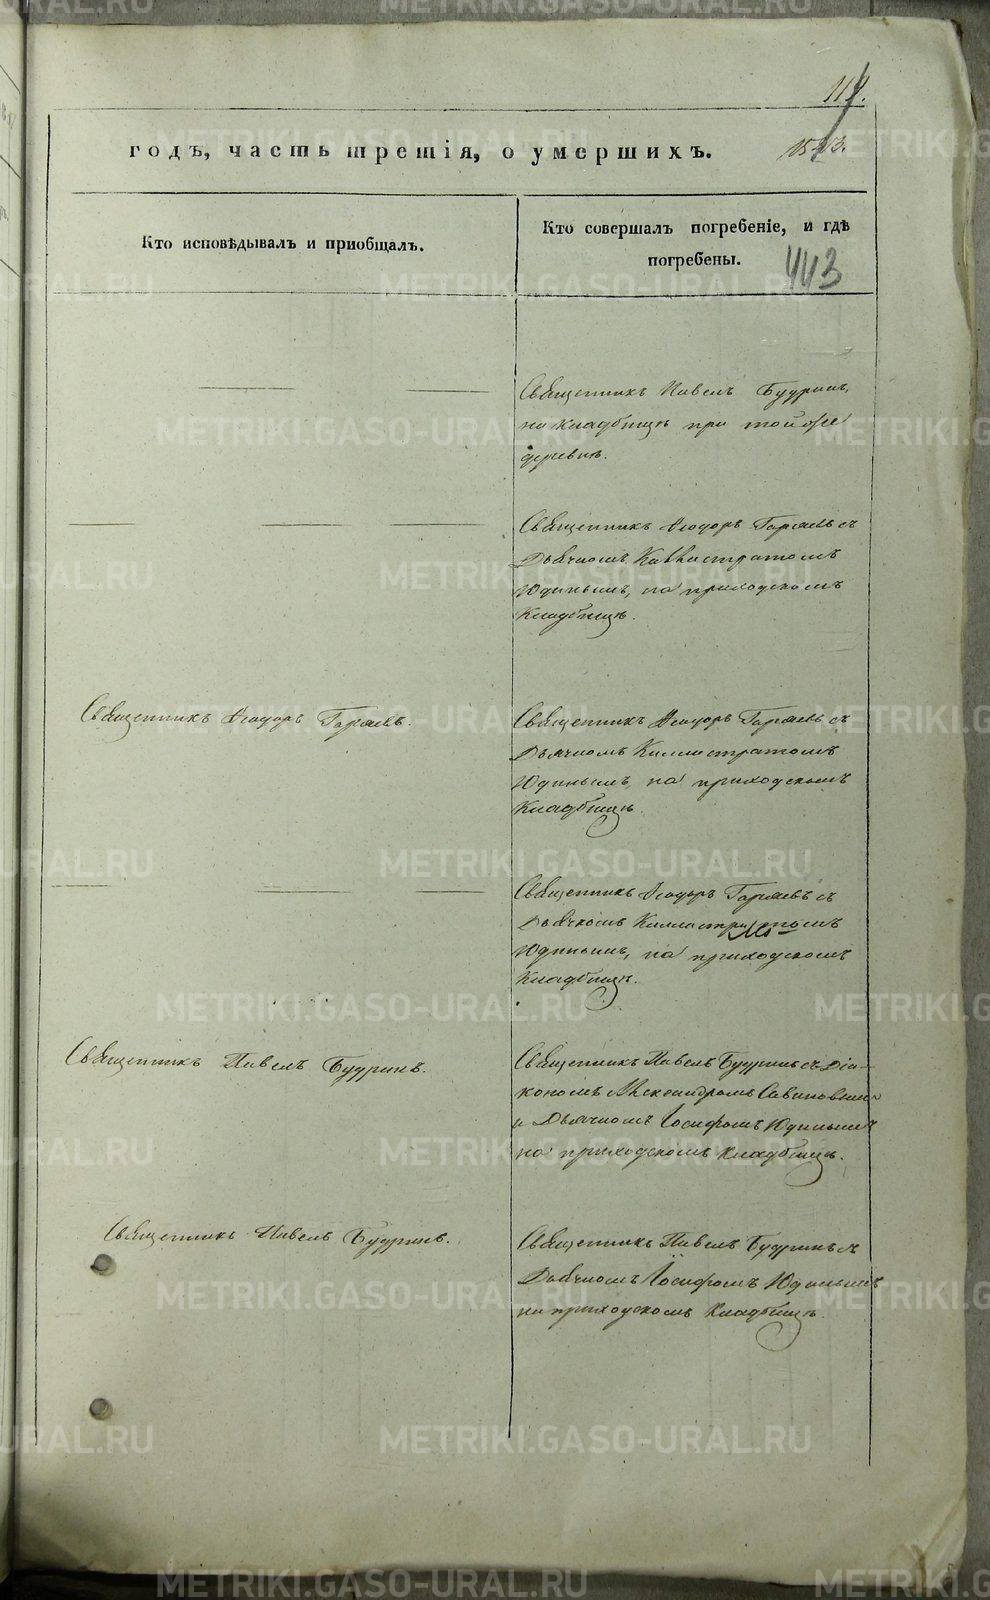 годъ, часть третія, о умершихъ.
Кто исповѣдывалъ и пріобщалъ.
Кто совершалъ погребеніе, и гдѣ
погребены.
443
Священникъ Павелъ Будринъ,
на кладбищѣ при той же
деревнѣ.
Священникъ Ѳеодоръ Гаряевъ съ
Дьячкомъ Каллистратомъ
Юдинымъ, на приходскомъ
Кладбищѣ.
Священникъ Ѳеодоръ Гаряевъ.
Священникъ Ѳеодоръ Гаряевъ съ
Дьячкомъ Каллистратомъ
Юдинымъ, на приходскомъ
Кладбищѣ.
Священникъ Ѳеодоръ Гаряевъ съ
Дьячкомъ Каллистратомъ
Юдинымъ, на приходскомъ
Кладбищѣ.
Священникъ Павелъ Будринъ.
Священникъ Павелъ Будринъ съ Діа-
кономъ Александромъ Савиновымъ
и Дьячкомъ Іосифомъ Юдинымъ
на приходскомъ кладбищѣ.
Священникъ Павелъ Будринъ.
Священникъ Павелъ Будринъ съ
Дьячкомъ Іосифомъ Юдинымъ
на приходскомъ Кладбищѣ.
METRIKI.GASO-URAL.RU